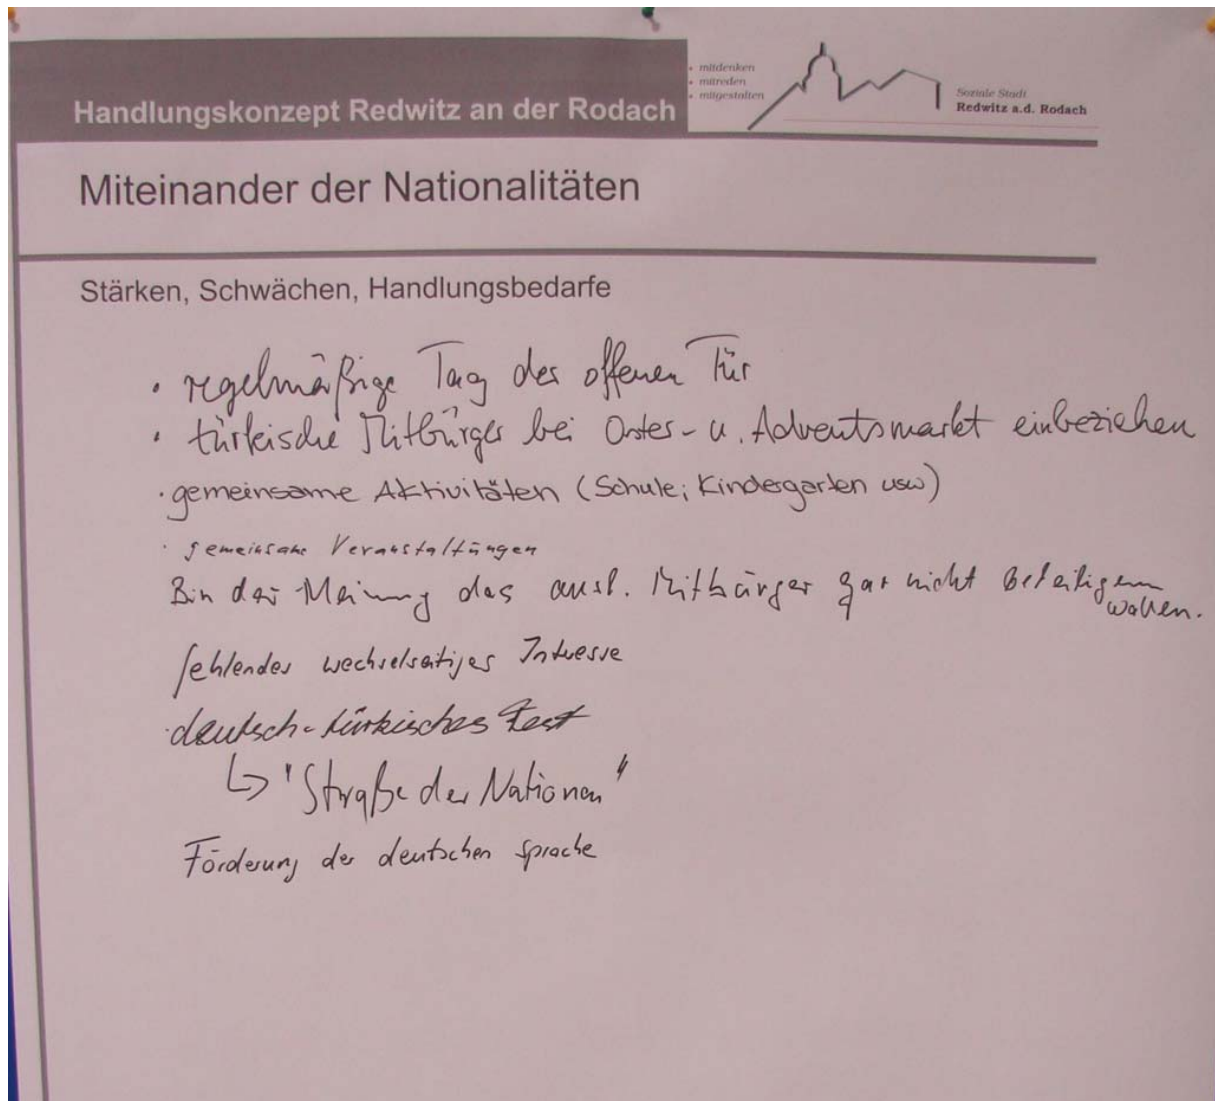 • mitdenken
• mitreden
• mitgestalten
Soziale Stadt
Redwitz a.d. Rodach
Handlungskonzept Redwitz an der Rodach
Miteinander der Nationalitäten
Stärken, Schwächen, Handlungsbedarfe
• regelmäßige Tag des offenen Tür
• türkische Mitbürger bei Oster- u. Adventsmarkt einbeziehen
· gemeinsame Aktivitäten (Schule; Kindergarten usw)
· gemeinsame Veranstaltungen
Bin der Meinung das ausl. Mitbürger gar nicht beteiligen
wollen.
fehlendes wechselseitiges Interesse
· deutsch-türkisches Fest
↳ "Straße der Nationen"
Förderung der deutschen Sprache